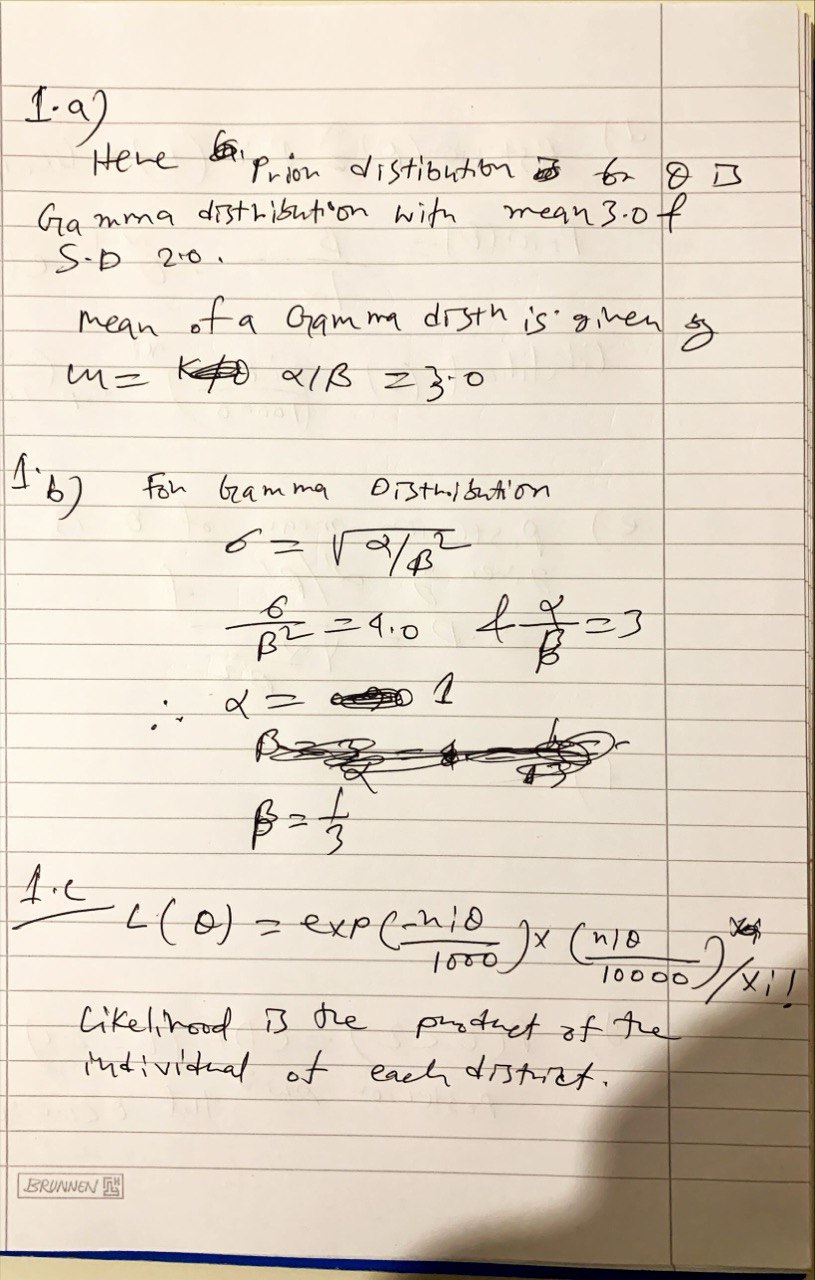 1.a)
Here Prior distibution for θ is
Gamma distribution with mean 3.0 &
S.D 2.0.
mean of a Gamma distn is given by
m = α/β = 3.0
1.b) For Gamma Distribution
σ = √α/β²
σ/β² = 4.0 & α/β = 3
∴ α = 1
β = 1/3
1.c L(θ) = exp(-niθ/1000) x (niθ/10000)/xi!
Likelihood is the product of the
individual of each district.
BRUNNEN